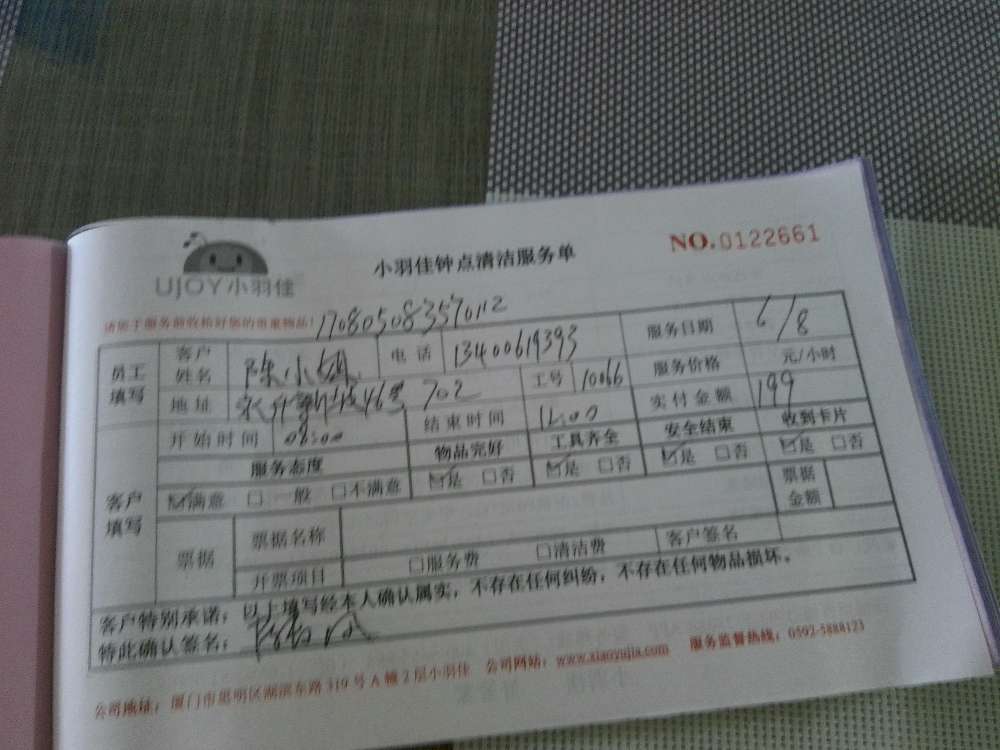 UJOY小羽佳
小羽佳钟点清洁服务单
NO.0122661
请您于服务前收拾好您的贵重物品!
员工填写 客户姓名 陈小 电话 13400619393 服务日期 6/8
地址 46号 702 工号 10066 服务价格 元/小时
开始时间 08:00 结束时间 11:00 实付金额 199
客户填写 服务态度 物品完好 工具齐全 安全结束 收到卡片
☑满意 □一般 □不满意 ☑是 □否 ☑是 □否 ☑是 □否 ☑是 □否
票据 票据名称 票据金额
开票项目 □服务费 □清洁费 客户签名
客户特别承诺：以上填写经本人确认属实，不存在任何纠纷，不存在任何物品损坏。
特此确认签名：
公司地址：厦门市思明区湖滨东路319号A幢2层小羽佳 公司网站：www.xiaoyujia.com 服务监督热线：0592-5888123